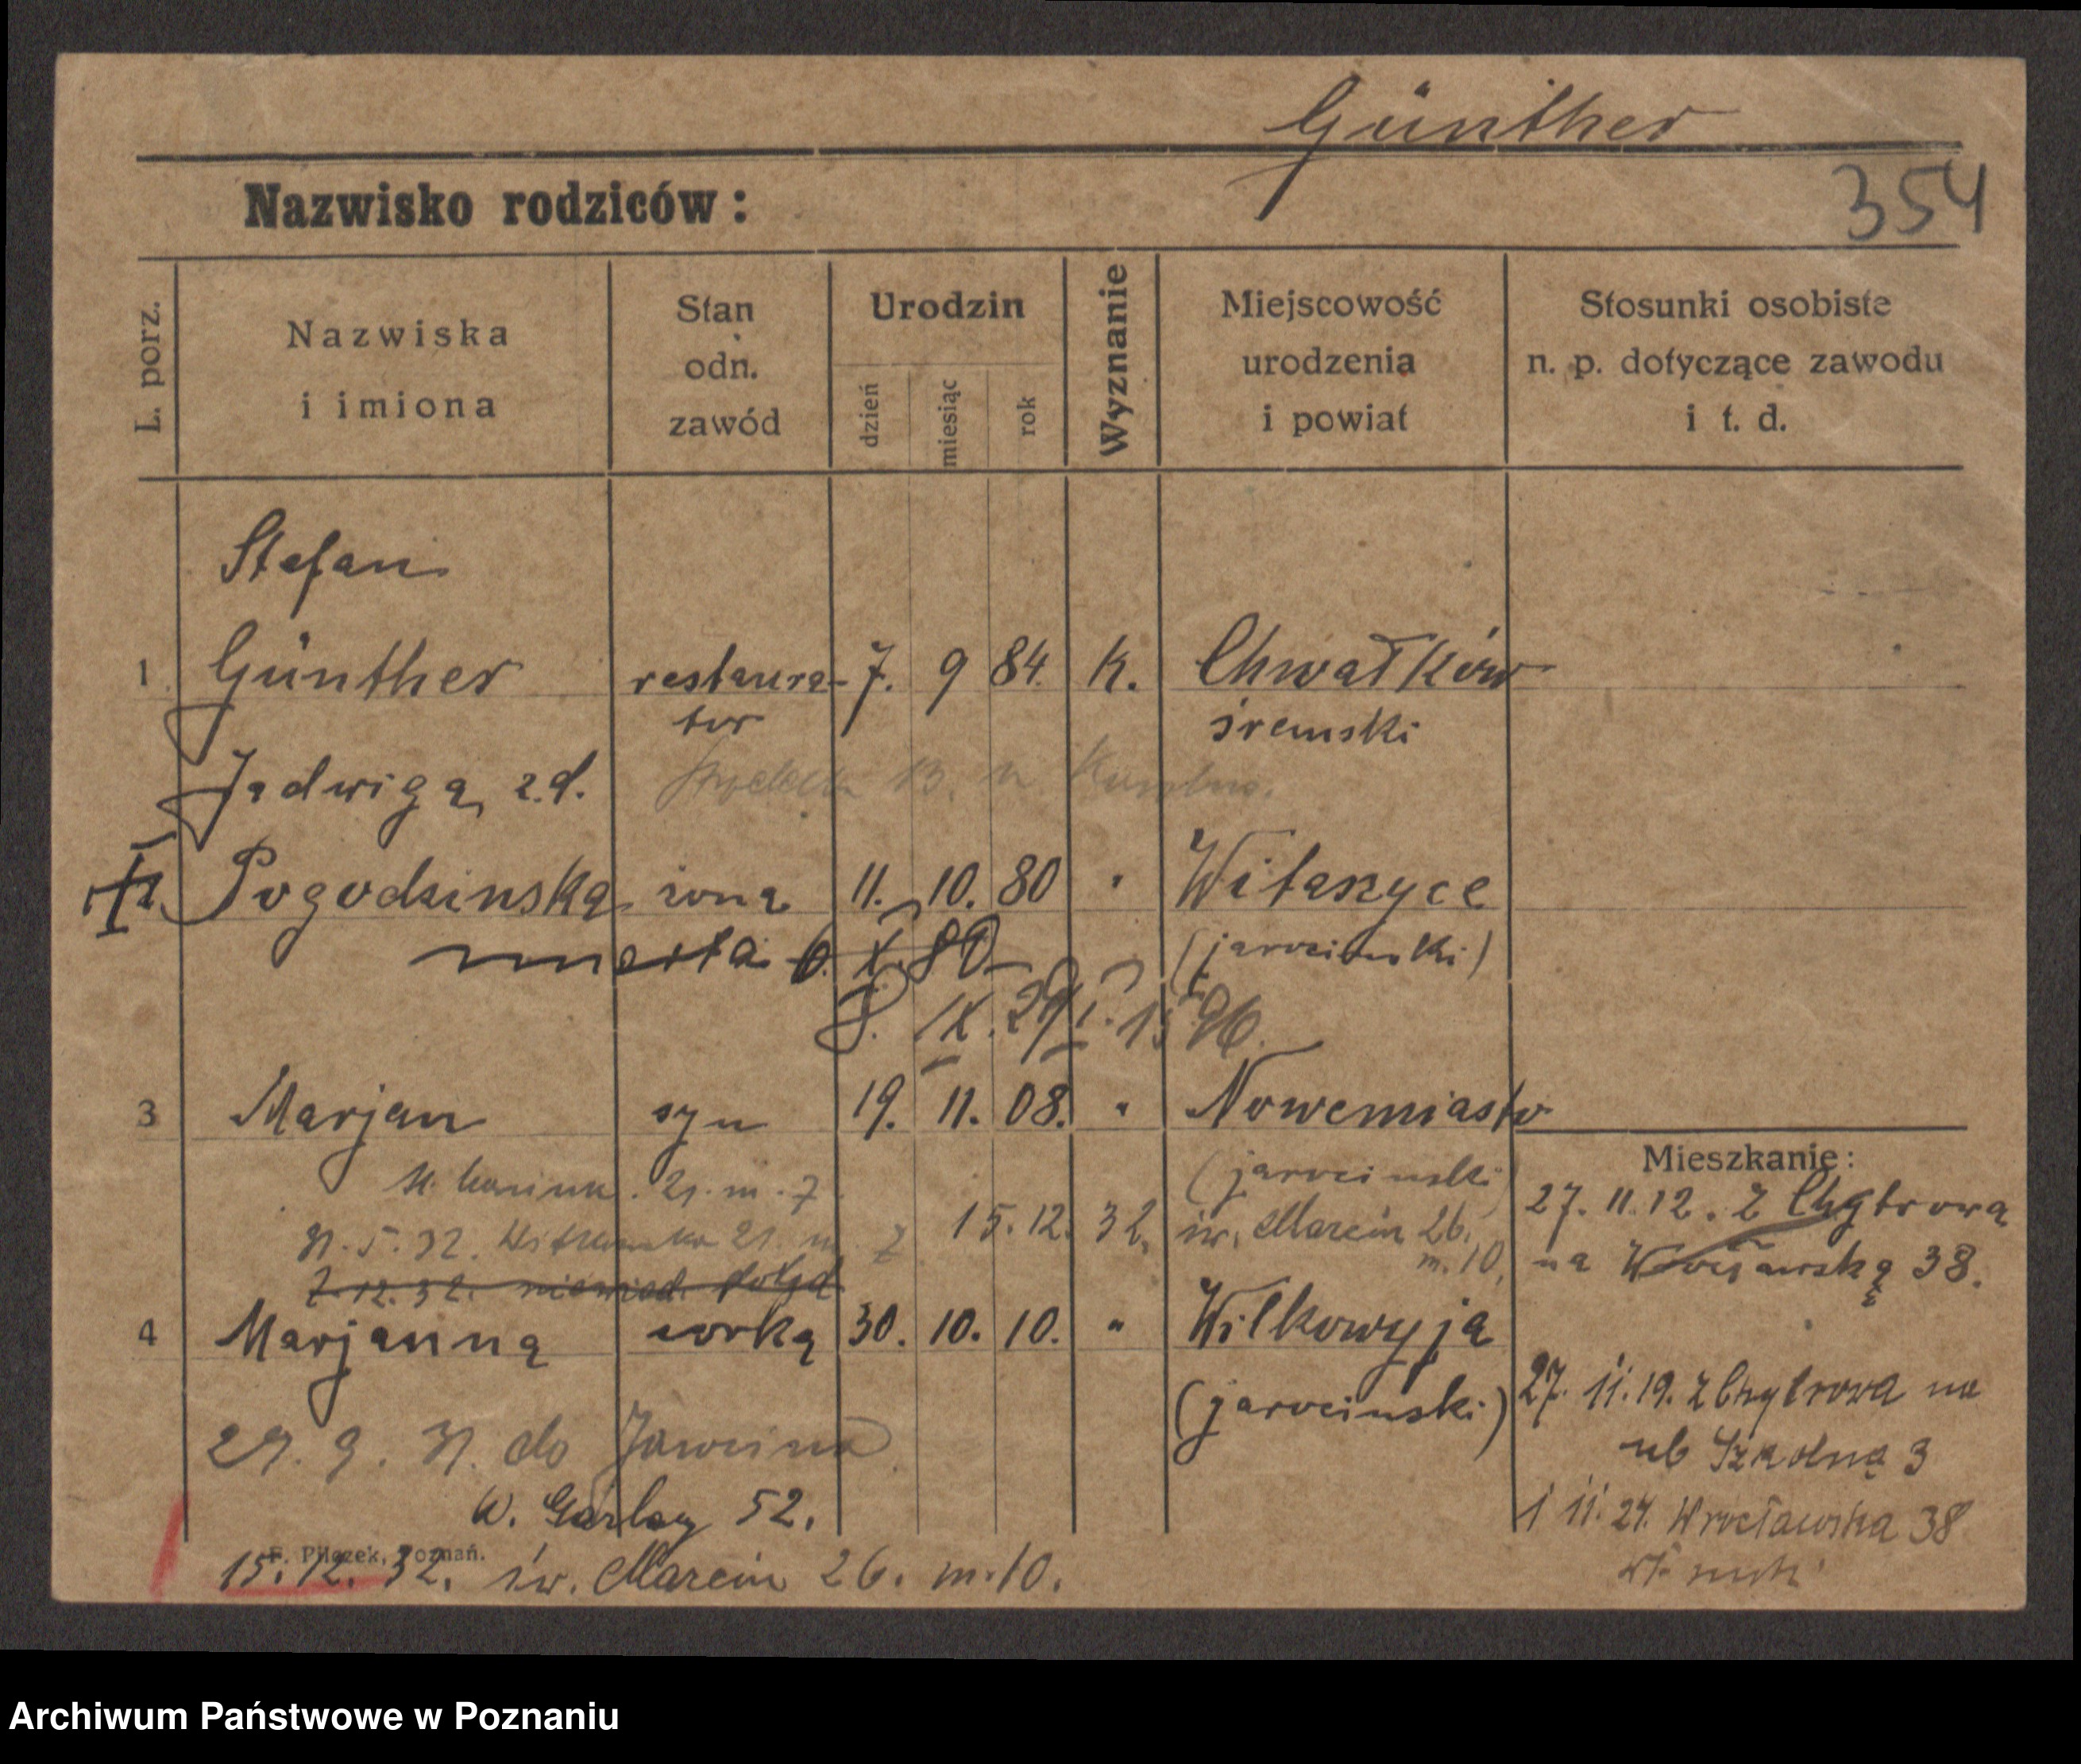 Günther
354
Nazwisko rodziców:
L. porz.
Nazwiska
i imiona
Stan
odn.
zawód
Urodzin
dzień
miesiąc
rok
Wyznanie
Miejscowość
urodzenia
i powiat
Stosunki osobiste
n. p. dotyczące zawodu
i t. d.
Stefan
1 Günther restaura- 7. 9 84 k. Chwałków
tor śremski
Jadwiga z.d.
Pogodzinska żona 11. 10. 80 " Witaszyce
umarła 6. X. 80 (jarociński)
8. IX. 29
3 Marjan syn 19. 11. 08. " Nowemiasto
(jarocinski)
21. m. 7
31. 5. 32. 21. m 7
15. 12. 32, św. Marcin 26.
m. 10.
7.12.32.
4 Marjanna corka 30. 10. 10. " Wilkowyja
(jarocinski)
29. 9. 31. do Jarocina
W. Garbary 52.
F. Pilczek, Poznań.
15. 12. 32. św. Marcin 26. m. 10.
Mieszkanie:
27. 11. 12. z Chytrowa
na 38.
27. 11. 19. z Chytrowa na
ul. Szkolną 3
1 11. 24. Wrocławska 38
Archiwum Państwowe w Poznaniu